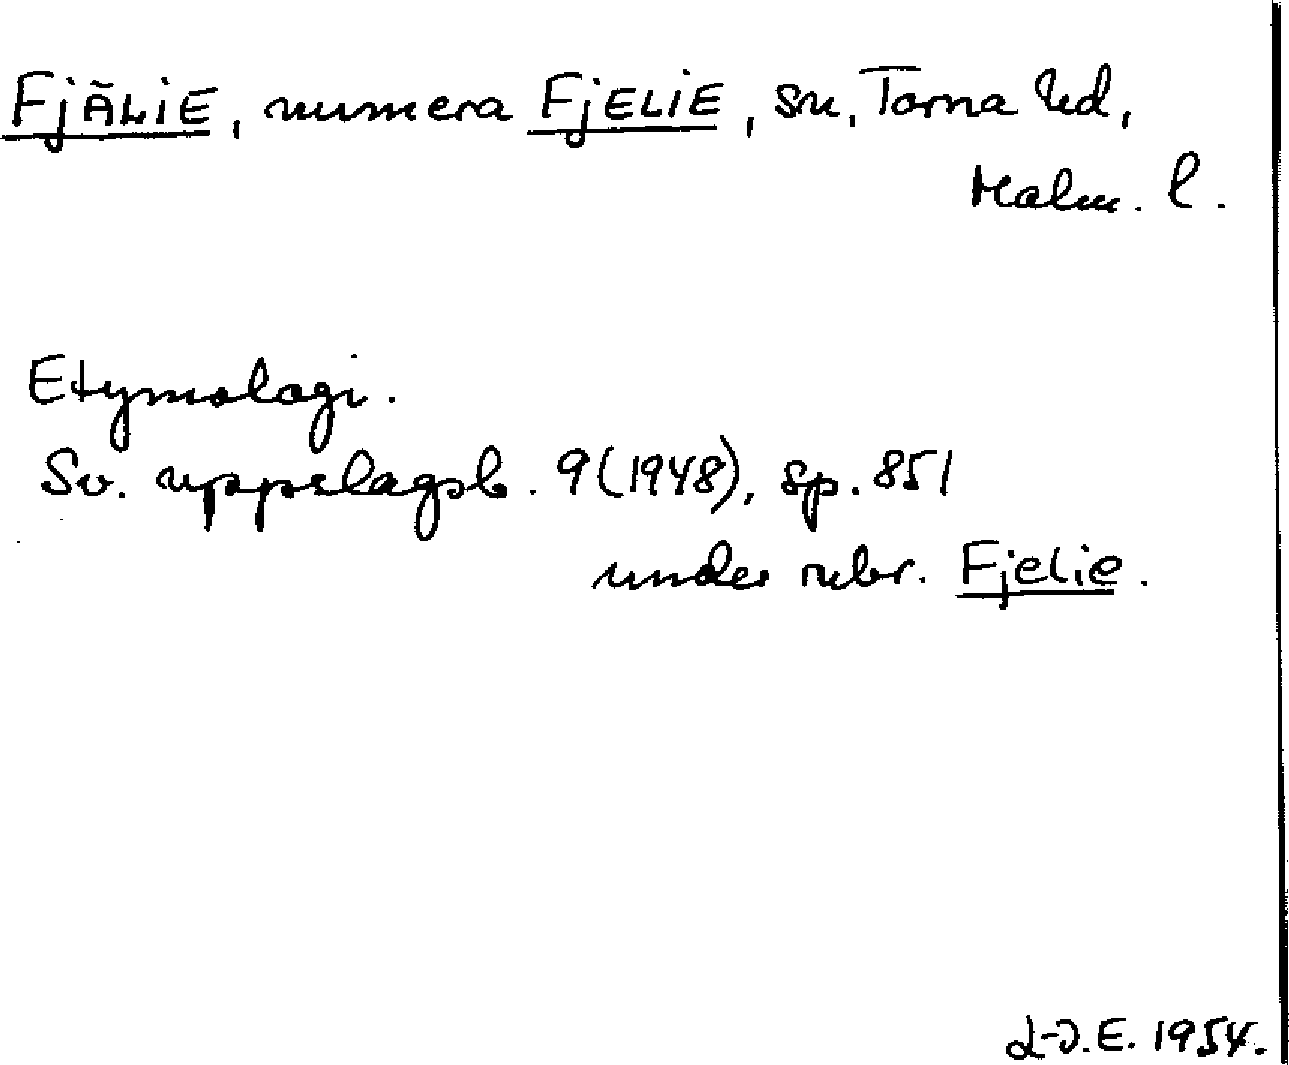 FjÄLiE, numera FjELiE, sn, Torna hd,
Malm. l.
Etymologi.
Sv. uppslagsb. 9(1948), sp. 851
under rubr. Fjelie.
L-J.E. 1954.